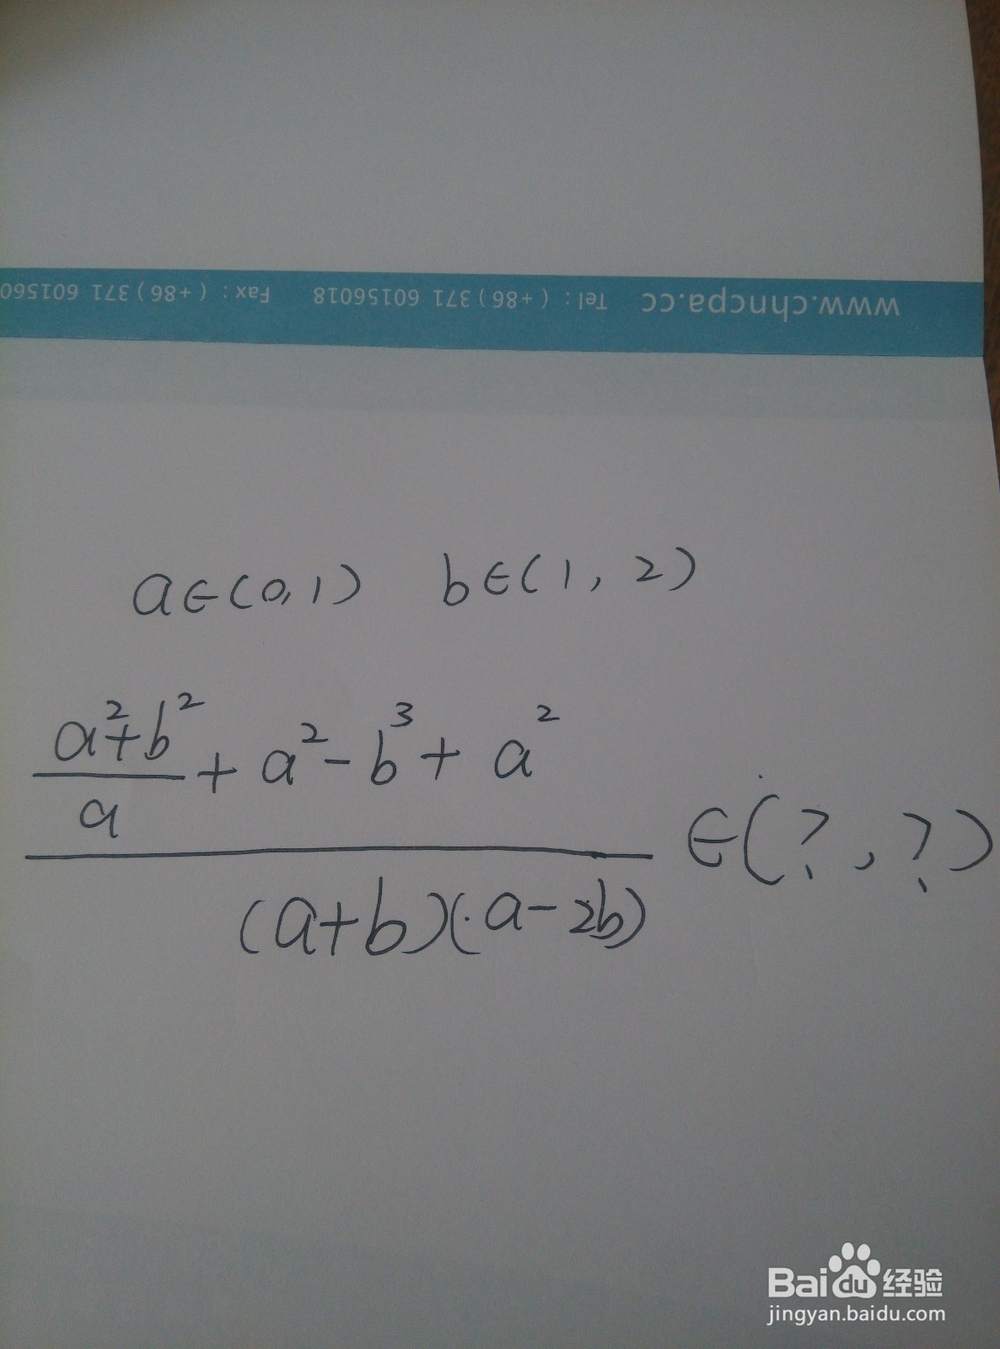 www.chncpa.cc Tel : ( +86 ) 371 60156018 Fax : ( +86 ) 371 601560
a∈(0,1) b∈(1, 2)
a²+b²
a
+ a² - b³ + a²
(a+b)(a-2b)
∈(?, ?)
Baidu 经验
jingyan.baidu.com